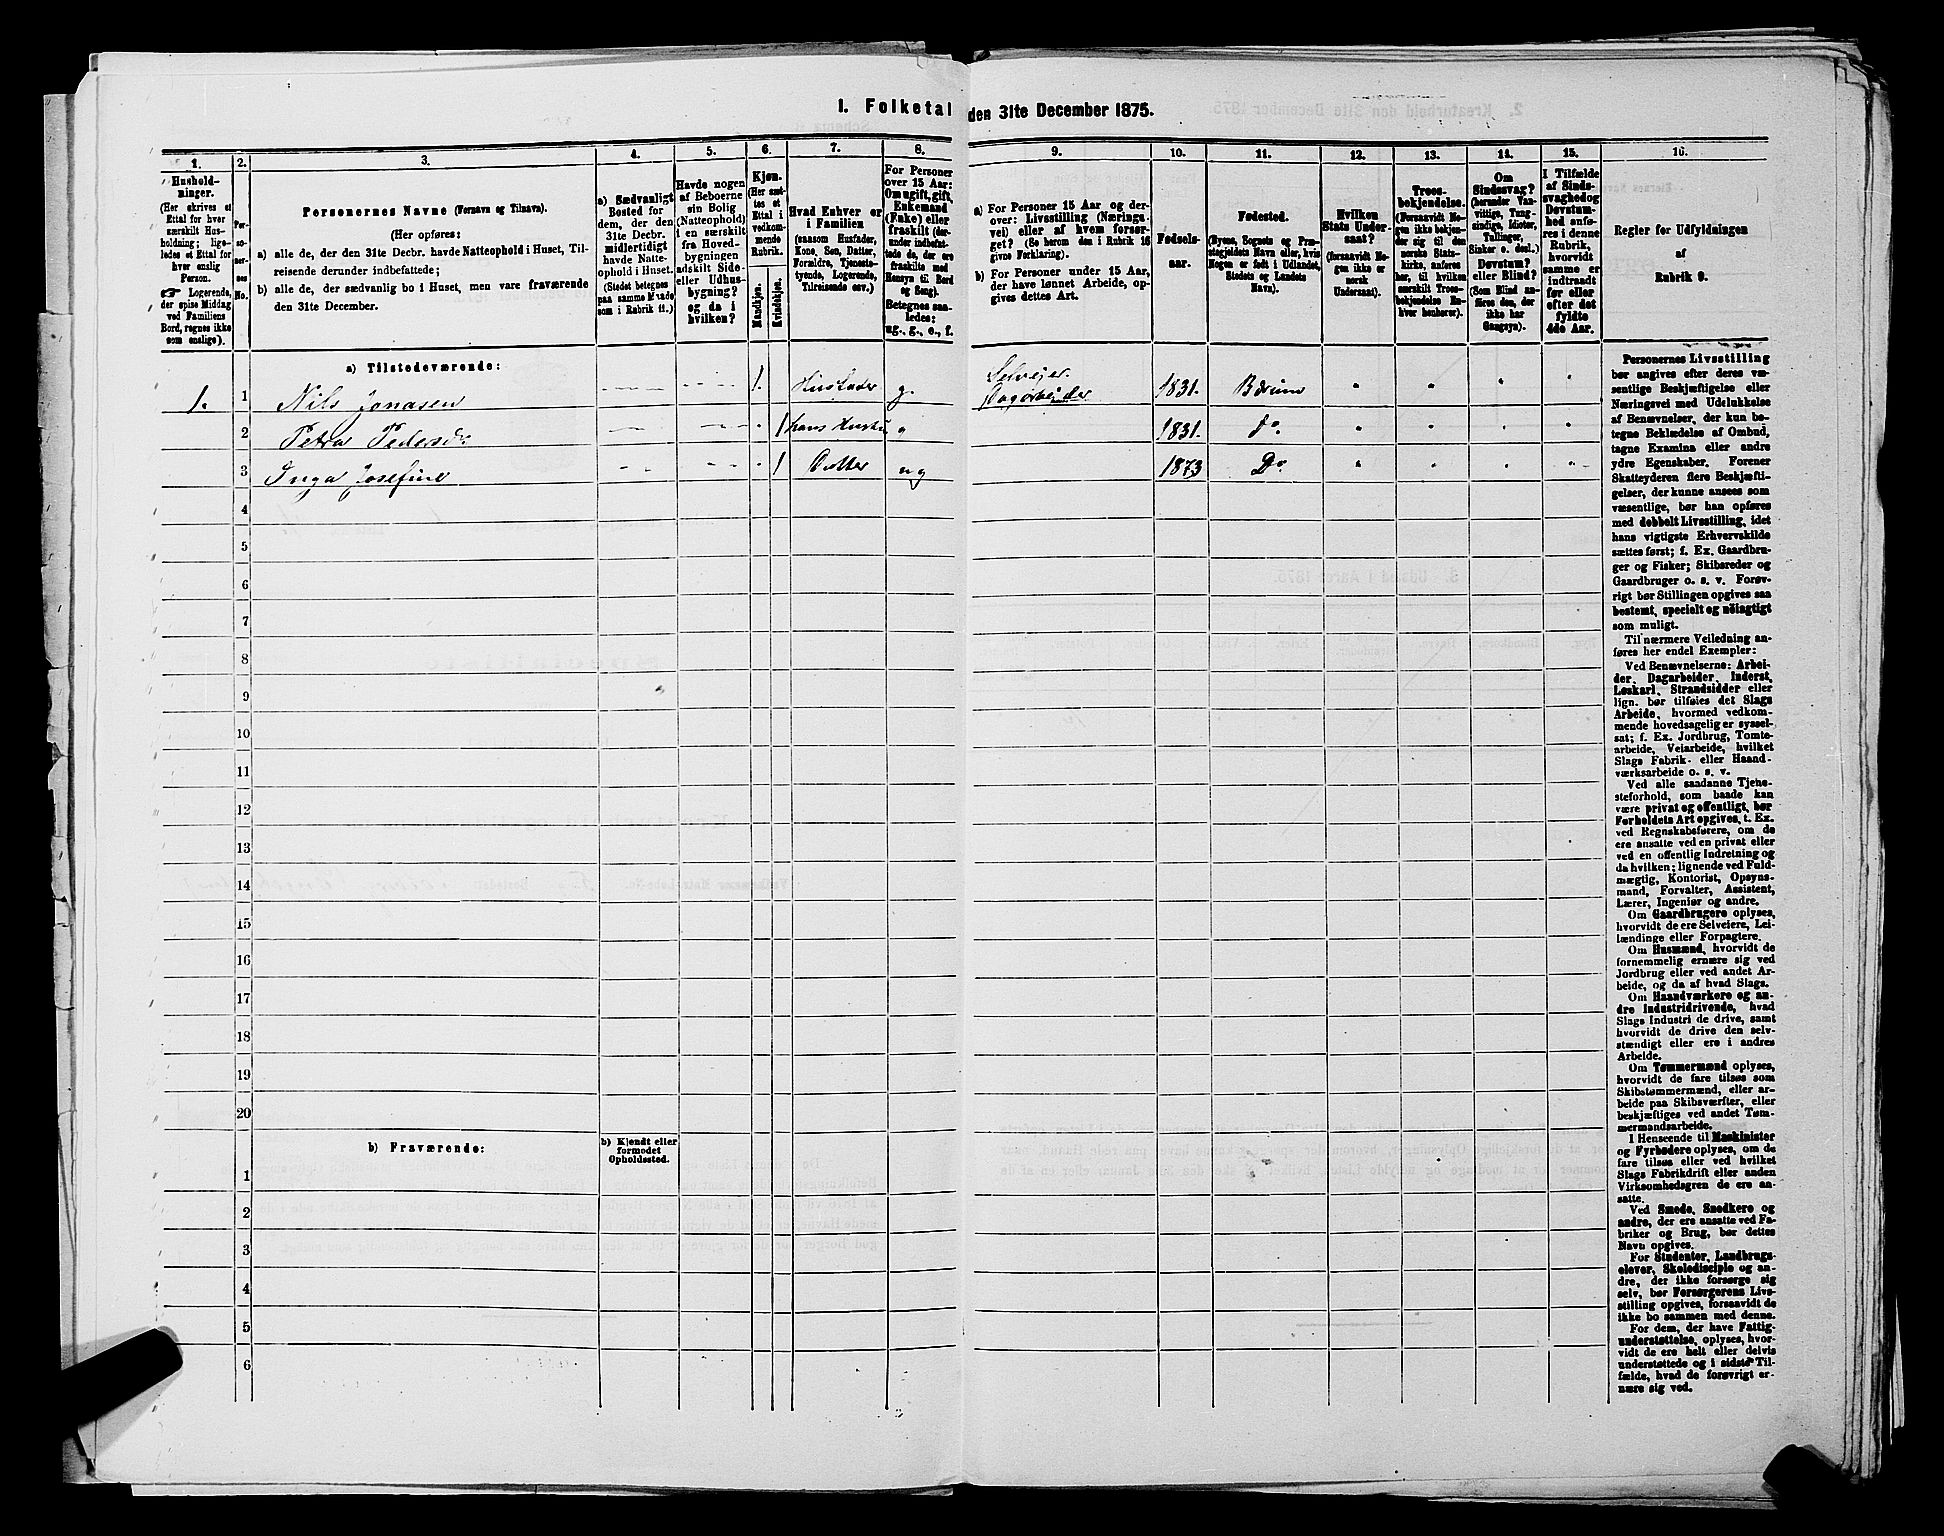 1. Folketal den 31te December 1875.
1. 2. 3. 4. 5. 6. 7. 8. 9. 10. 11. 12. 13. 14. 15. 16.
Hushold-
ninger.
(Her skrives et
Ettal for hver
særskilt Hus-
holdning; lige-
ledes et Ettal for
hver enslig
Person.
☞ Logerende,
der spise Middag
ved Familiens
Bord, regnes ikke
som enslige).
Per-
so-
ner-
nes
No.
Personernes Navne (Fornavn og Tilnavn).
(Her opføres:
a) alle de, der den 31te Decbr. havde Natteophold i Huset, Til-
reisende derunder indbefattede;
b) alle de, der sædvanlig bo i Huset, men vare fraværende
den 31te December.
a) Sædvanligt
Bosted for
dem, der den
31te Decbr.
midlertidigt
havde Natte-
ophold i Huset.
(Stedet betegnes
paa samme Maade
som i Rubrik 11.)
Havde nogen
af Beboerne
sin Bolig
(Natteophold)
i en særskilt
fra Hoved-
bygningen
adskilt Side-
eller Udhus-
bygning?
og da i
hvilken?
Kjøn.
(Her sæt-
tes et
Ettal i
vedkom-
mende
Rubrik.
Mandkjøn.
Kvindekjøn.
Hvad Enhver er
i Familien
(saasom Husfader,
Kone, Søn, Datter,
Forældre, Tjeneste-
tyende, Logerende,
Tilreisende osv.)
For Personer
over 15 Aar:
Om ugift, gift,
Enkemand
(Enke) eller
fraskilt (der-
under indbefat-
tede de, der ere
fraskilte med
Hensyn til Bord
og Seng).
Betegnes saa-
ledes:
ug., g., e., f.
a) For Personer 15 Aar og der-
over: Livsstilling (Nærings-
vei) eller af hvem forsør-
get? (Se herom den i Rubrik 16
givne Forklaring).
b) For Personer under 15 Aar,
der have lønnet Arbeide, op-
gives dettes Art.
Fødsels-
aar.
Fødested.
(Byens, Sognets og Præ-
stegjeldets Navn eller, hvis
Nogen er født i Udlandet,
Stedets og Landets
Navn).
Hvilken
Stats Under-
saat?
(forsaavidt No-
gen ikke er
norsk
Undersaat).
Troes-
bekjendelse.
(Forsaavidt No-
gen ikke bekjen-
der sig til den
norske Stats-
kirke, anføres
her, til hvilken
særskilt Troes-
bekjendelse En-
hver henhører).
Om
Sindssvag?
(herunder Van-
vittige, Tung-
sindige, Idioter,
Tullinger,
Sinker o. desl.).
Døvstum?
eller Blind?
(Som Blind an-
føres den, der
ikke har
Gangsyn).
I Tilfælde
af Sinds-
svaghed og
Døvstum-
hed anfø-
res i denne
Rubrik,
hvorvidt
samme er
indtraadt
før eller
efter det
fyldte
4de Aar.
Regler for Udfyldningen
af
Rubrik 9.
a) Tilstedeværende:
1. 1 Nils Jonasen 1. Husfader g. Selvejer Dagarbeider 1831. Bærum
2 Petra Pedersd. 1 hans Hustru " 1831. do.
3 Inga Josefine 1 Datter ug 1873 Do.
4
5
6
7
8
9
10
11
12
13
14
15
16
17
18
19
20
b) Fraværende:
b) Kjendt eller
formodet
Opholdssted.
1
2
3
4
5
6
Personernes Livsstilling
bør angives efter deres væ-
sentlige Beskjæftigelse eller
Næringsvei med Udelukkelse
af Benævnelser, der kun be-
tegne Beklædelse af Ombud,
tagne Examina eller andre
ydre Egenskaber. Forener
Skatteyderen flere Beskjæfti-
gelser, der kunne ansees som
væsentlige, bør han opføres
med dobbelt Livsstilling, idet
hans vigtigste Erhvervskilde
sættes først; f. Ex. Gaardbru-
ger og Fisker; Skibsreder og
Gaardbruger o. s. v. Forøv-
rigt bør Stillingen opgives saa
bestemt, specielt og nöiagtigt
som muligt.
Til nærmere Veiledning an-
føres her endel Exempler:
Ved Benævnelserne: Arbei-
der, Dagarbeider, Inderst,
Løskarl, Strandsidder eller
lign. bør tilføies det Slags
Arbeide, hvormed vedkom-
mende hovedsagelig er syssel-
sat; f. Ex. Jordbrug, Tomte-
arbeide, Veiarbeide, hvilket
Slags Fabrik- eller Haand-
værksarbeide o. s. v.
Ved alle saadanne Tjene-
steforhold, som baade kan
være privat og offentligt, bør
Forholdets Art opgives, t. Ex.
ved Regnskabsførere, om de
ere ansatte ved en privat eller
ved en offentlig Indretning og
da hvilken; lignende ved Fuld-
mægtig, Kontorist, Opsyns-
mand, Forvalter, Assistent,
Lærer, Ingeniør og andre.
Om Gaardbrugere oplyses,
hvorvidt de ere Selveiere, Lei-
lændinge eller Forpagtere.
Om Husmænd, hvorvidt de
fornemmelig ernære sig ved
Jordbrug eller ved andet Ar-
beide, og da af hvad Slags.
Om Haandværkere og an-
dre Industridrivende, hvad
Slags Industri de drive, samt
hvorvidt de drive den selv-
stændigt eller ere i andres
Arbeide.
Om Tømmermænd oplyses,
hvorvidt de fare tilsøs som
Skibstømmermænd, eller ar-
beide paa Skibsværfter, eller
beskjæftiges ved andet Tøm-
mermandsarbeide.
I Henseende til Maskinister
og Fyrbødere oplyses, om de
fare tilsøs eller ved hvilket
Slags Fabrikdrift eller anden
Virksomhedsgren de ere an-
satte.
Ved Smede, Snedkere og
andre, der ere ansatte ved Fa-
briker og Brug, bør dettes
Navn opgives.
For Studenter, Landbrugs-
elever, Skoledisciple og an-
dre, der ikke forsørge sig
selv, bør Forsørgerens Livs-
stilling opgives, forsaavidt de
ikke bo sammen med denne.
For dem, der have Fattig-
understøttelse, oplyses, hvor-
vidt de ere helt eller delvis
understøttede og i sidste Til-
fælde, hvad de forøvrigt er-
nære sig ved.